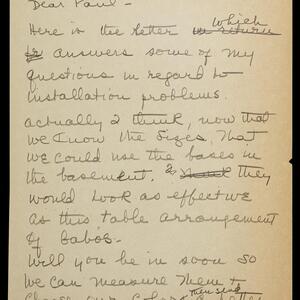 Dear Paul -
Here is the letter which
answers some of my
questions in regard to
installation problems.
Actually I think, now that
we know the sizes, that
we could use the bases in
the basement. & they
would look as effective
as this table arrangement
of Gabo's -
Will you be in soon so
we can measure them +
our colors then send